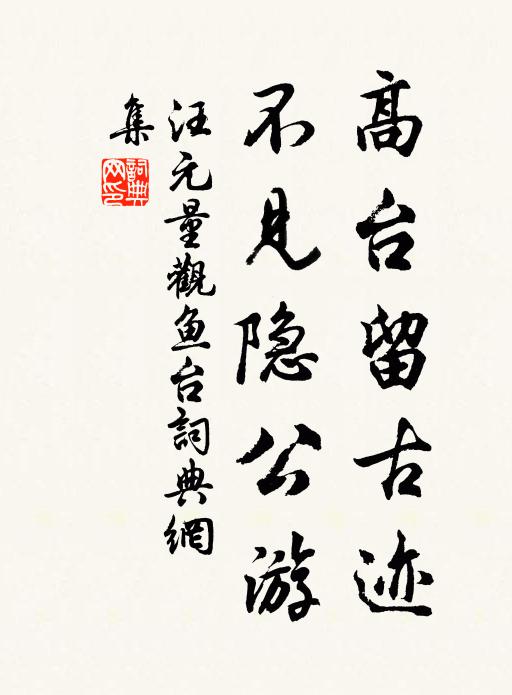 高台留古迹
不见隐公游
汪元量觀鱼台詞典網
集
詞典网印